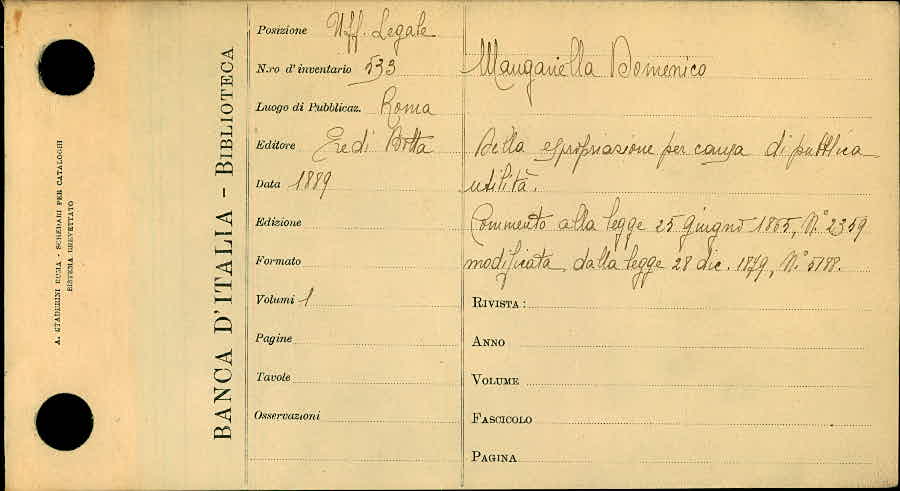 A. STADERINI ROMA - SCHEDARI PER CATALOGHI
SISTEMA BREVETTATO
BANCA D'ITALIA - BIBLIOTECA
Posizione Uff. Legale
N.ro d'inventario 533
Luogo di Pubblicaz. Roma
Editore Eredi Botta
Data 1889
Edizione
Formato
Volumi 1
Pagine
Tavole
Osservazioni
Manganiella Domenico
Della espropriazione per causa di pubblica
utilità.
Commento alla legge 25 giugno 1865, N.° 2359
modificata dalla legge 28 dic. 1879, N.° 5188.
RIVISTA :
ANNO
VOLUME
FASCICOLO
PAGINA